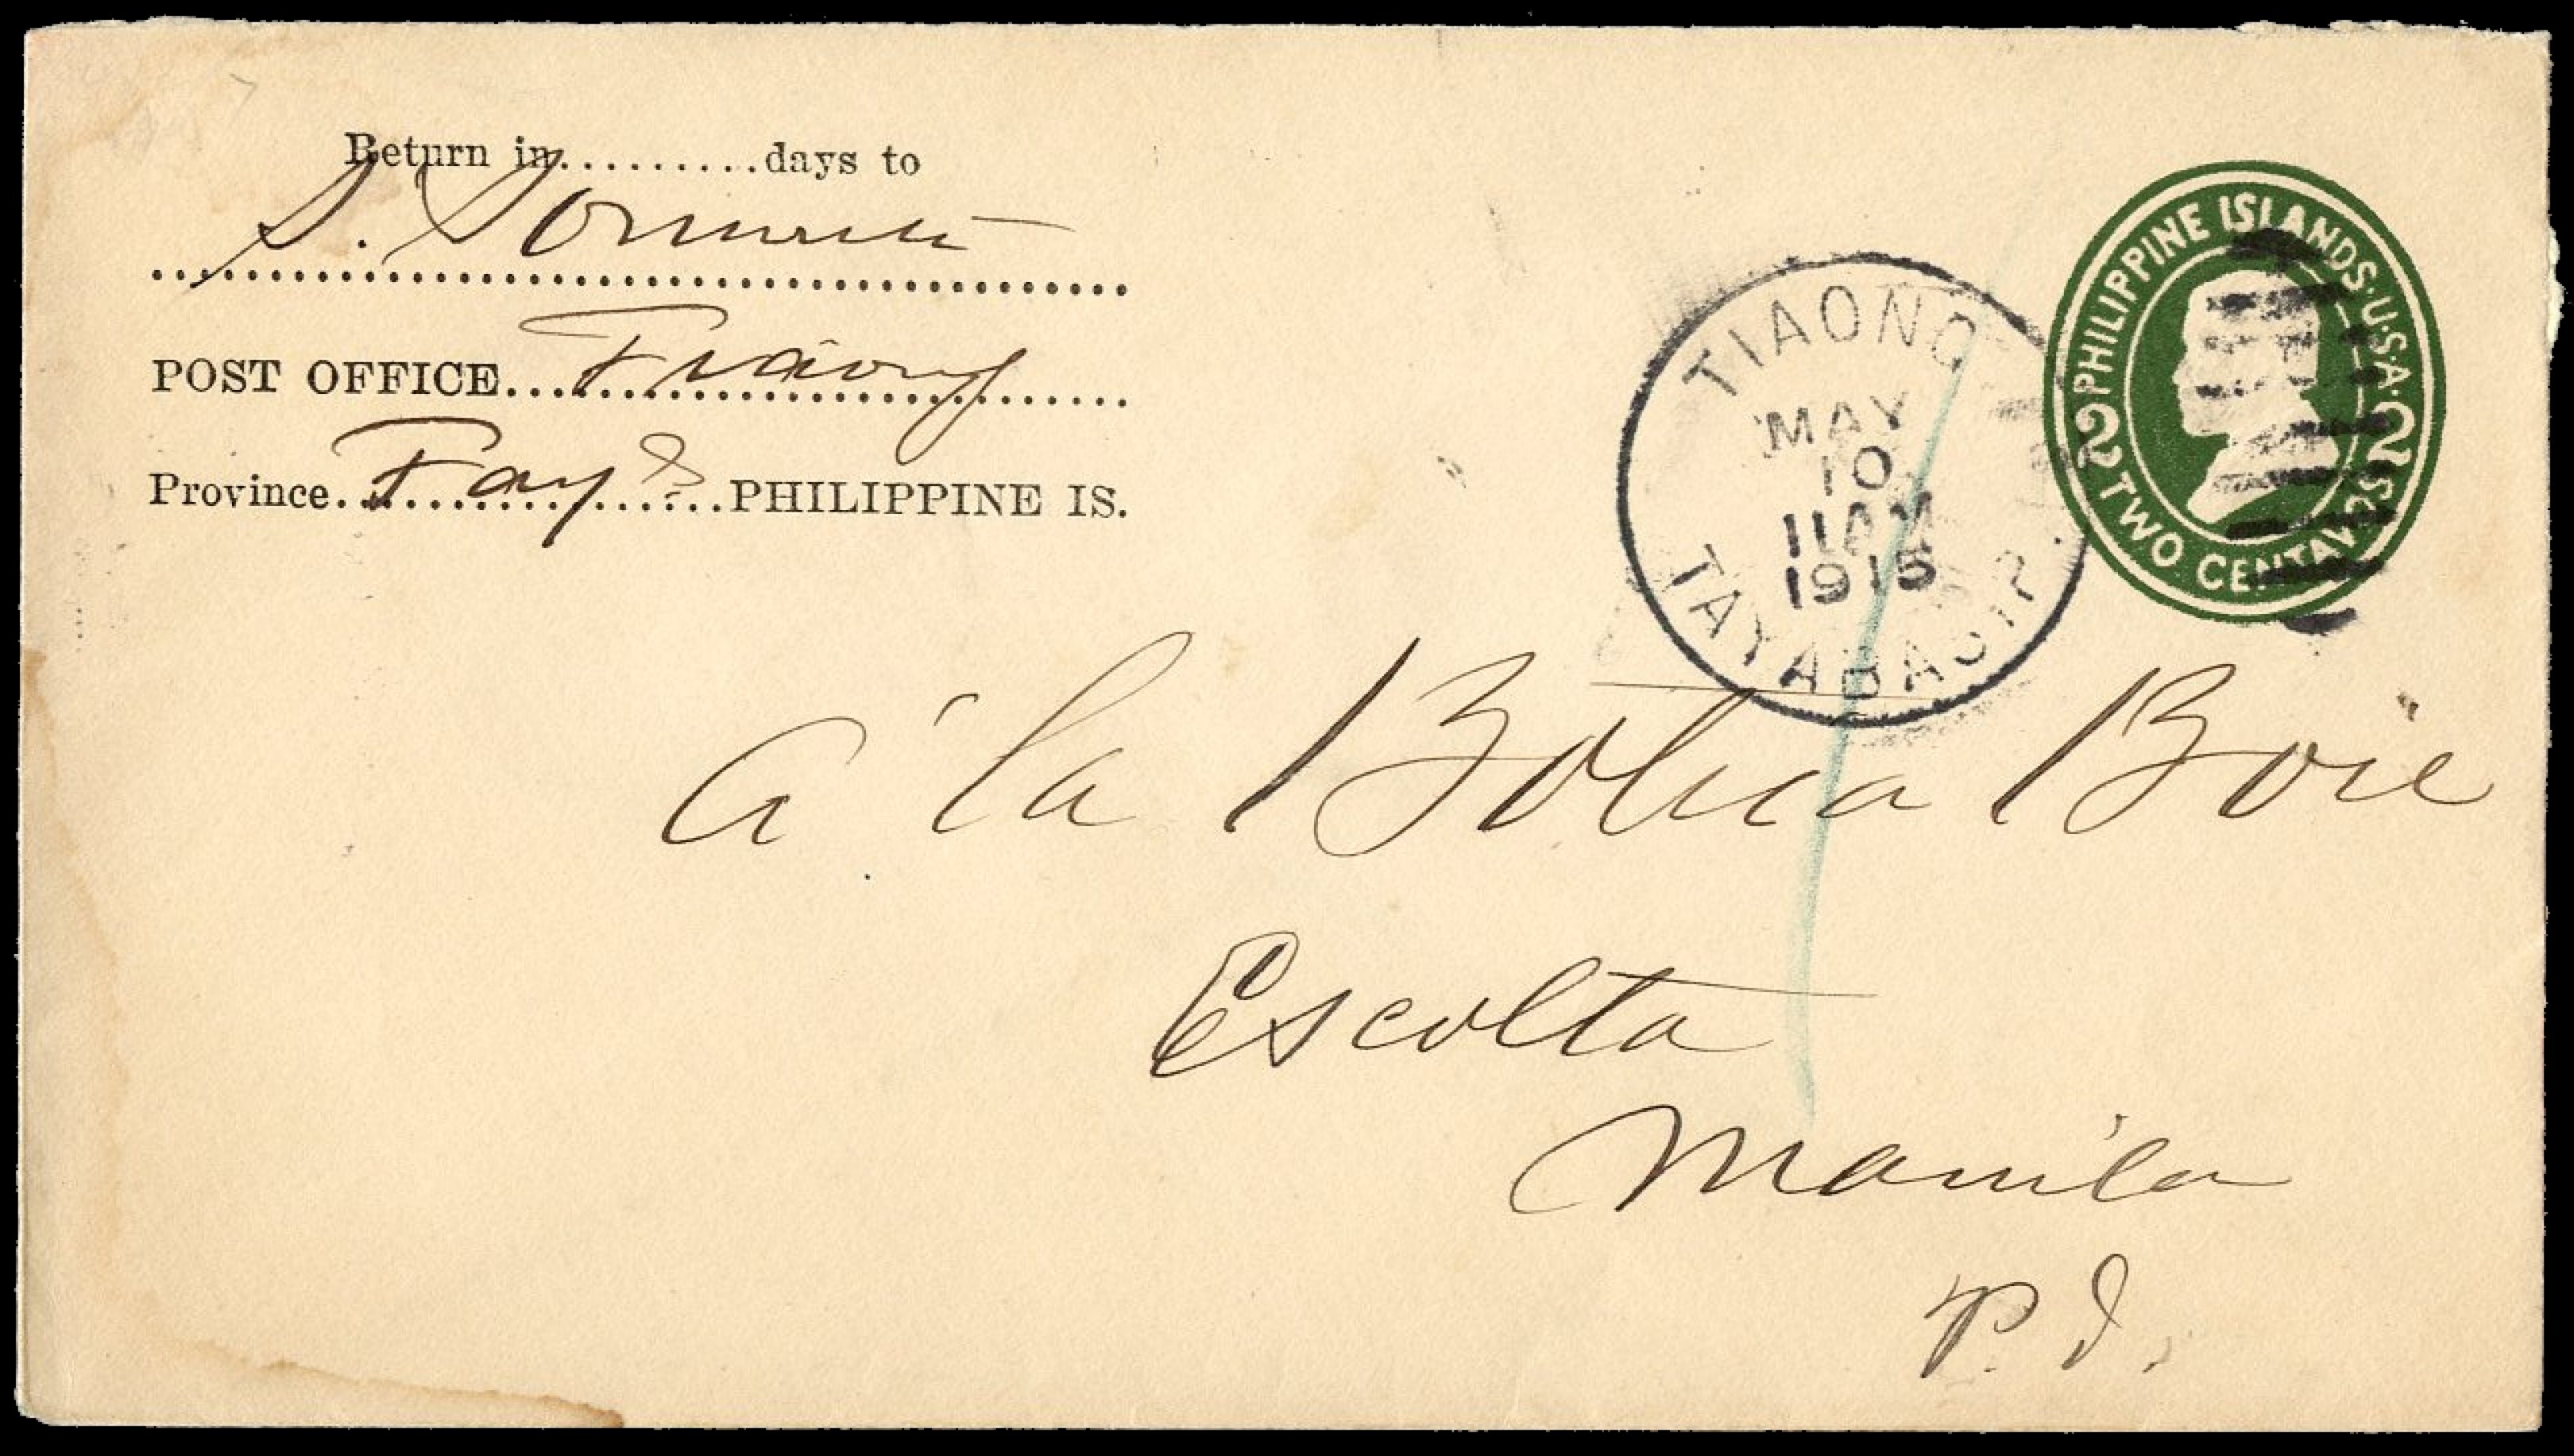 Return in..........days to
S.
POST OFFICE... Tiaong
Province. Tayˢ PHILIPPINE IS.
TIAONG
MAY
10
11AM
1915
TAYABAS
PHILIPPINE ISLANDS·U·S·A·
2 TWO CENTAVOS 2
á la Botica Boie
Escolta
Manila
P. I.